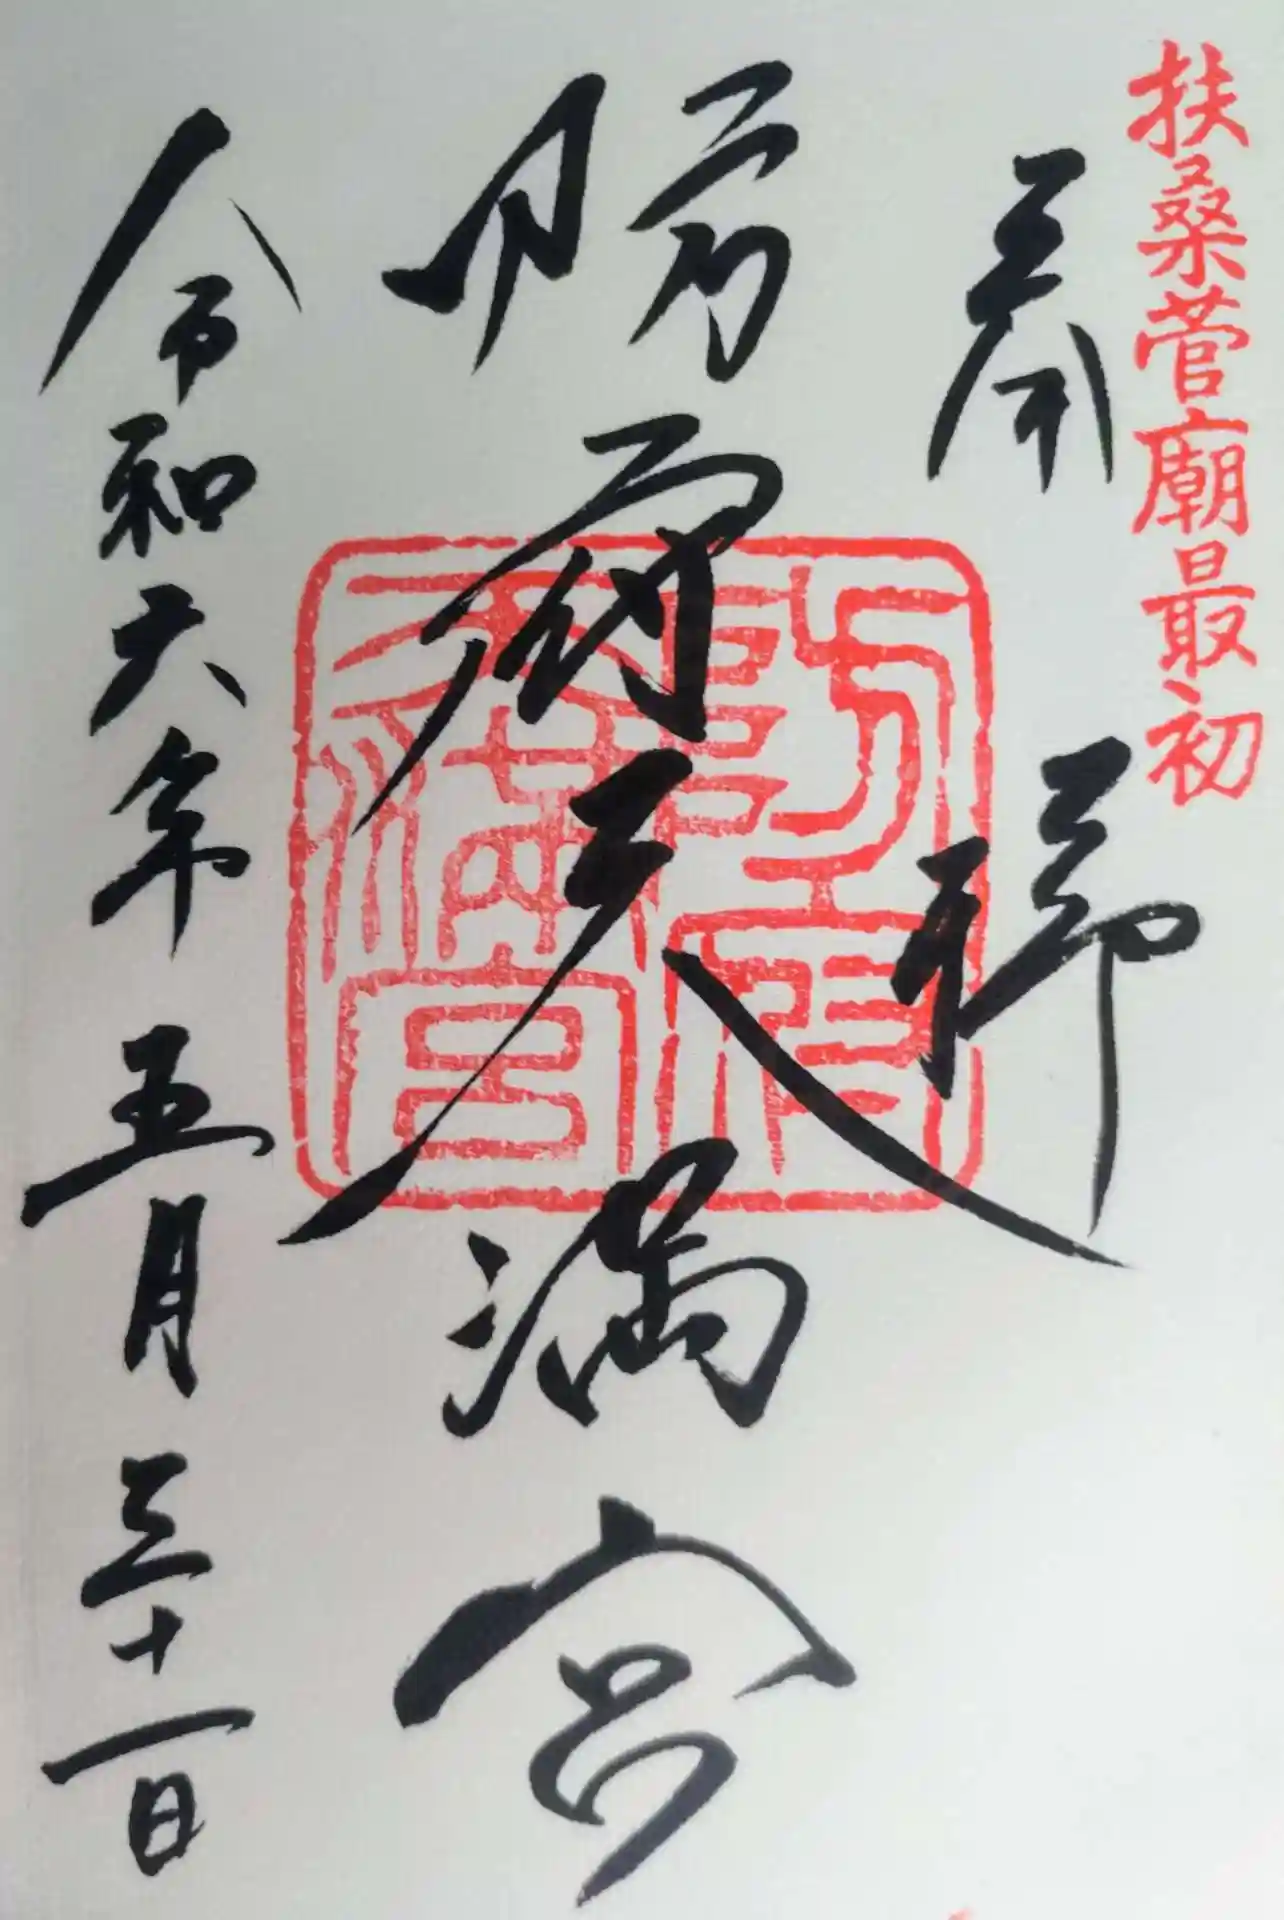 扶桑菅廟最初
奉拝
防府天満宮
防府
天満宮
令和六年五月三十一日